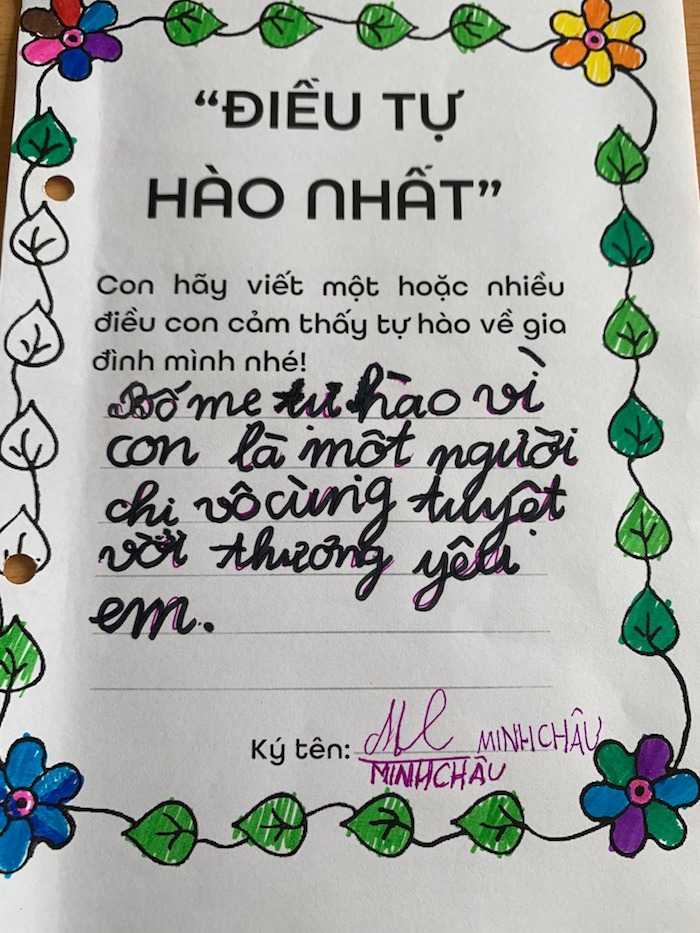 “ĐIỀU TỰ
HÀO NHẤT”
Con hãy viết một hoặc nhiều
điều con cảm thấy tự hào về gia
đình mình nhé!
Bố mẹ tự hào vì
con là một người
chị vô cùng tuyệt
vời thương yêu
em.
Ký tên: MC MINH CHÂU
MINH CHÂU